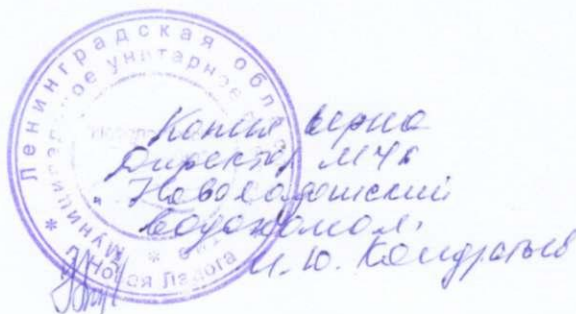 Ленинградская обл
Муниципальное унитарное
* Новая Ладога *
Копия верна
Директор МУП
"Новоладожский
Водоканал"
И. Ю. Кондратьев